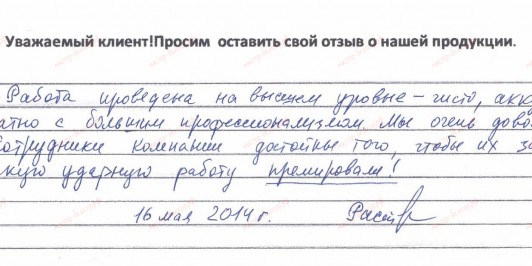 Уважаемый клиент!Просим оставить свой отзыв о нашей продукции.
Работа проведена на высшем уровне – чисто, акк
ратно с большим профессионализмом. Мы очень дово
сотрудники компании достойны того, чтобы их за
кую ударную работу премировали!
16 мая 2014 г.